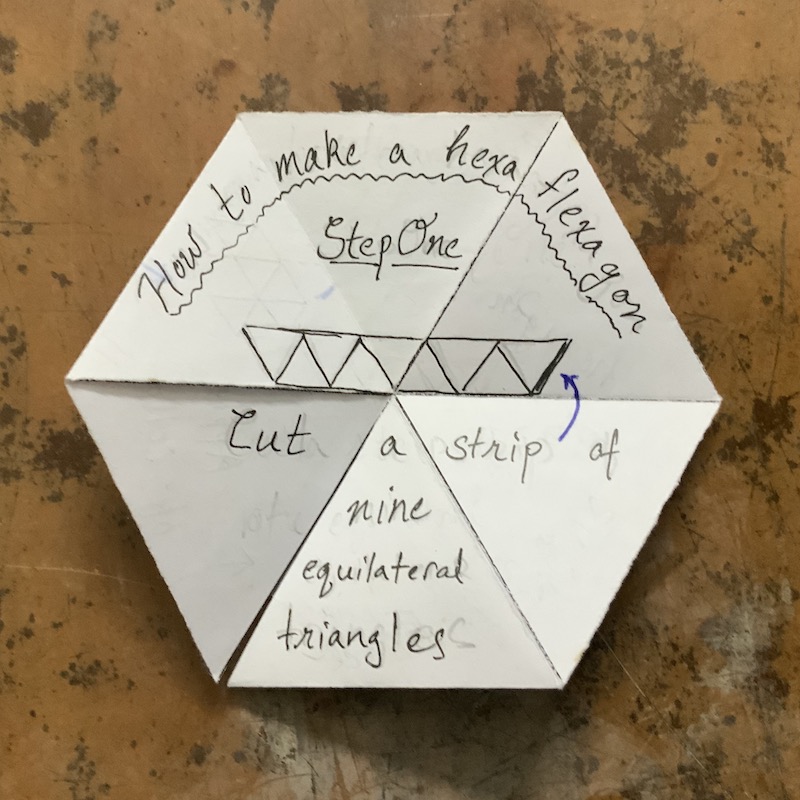 How to make a hexa flexagon
Step One
Cut a strip of
nine
equilateral
triangles